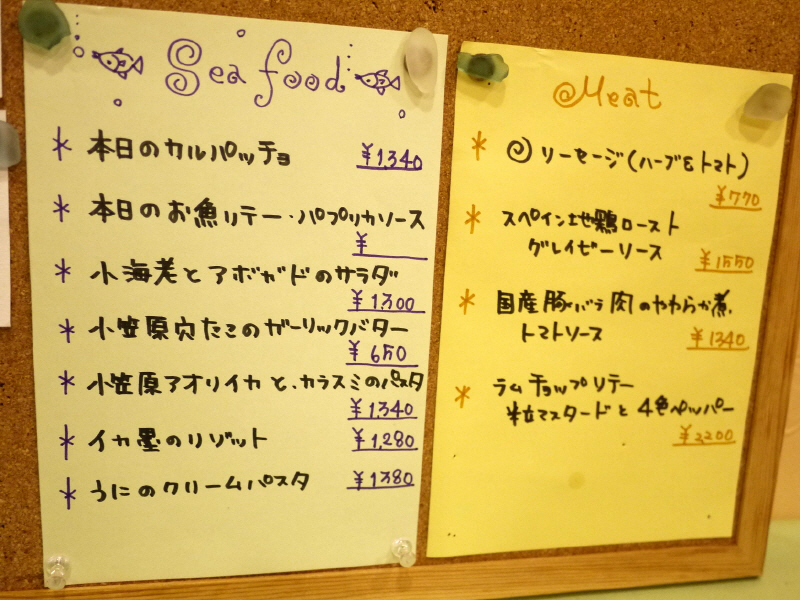 Sea food
* 本日のカルパッチョ ¥1,340
* 本日のお魚リテー・パプリカソース
¥
* 小海老とアボガドのサラダ
¥1300
* 小笠原穴だこのガーリックバター
¥650
* 小笠原アオリイカと、カラスミのパスタ
¥1,340
* イカ墨のリゾット ¥1,280
* うにのクリームパスタ ¥1380
Meat
* ソーセージ(ハーブ&トマト)
¥770
* スペイン地鶏ロースト
グレイビーソース ¥1550
* 国産豚バラ肉のやわらか煮
トマトソース ¥1340
* ラムチョップリテー
粒マスタードと4色ペッパー
¥2200